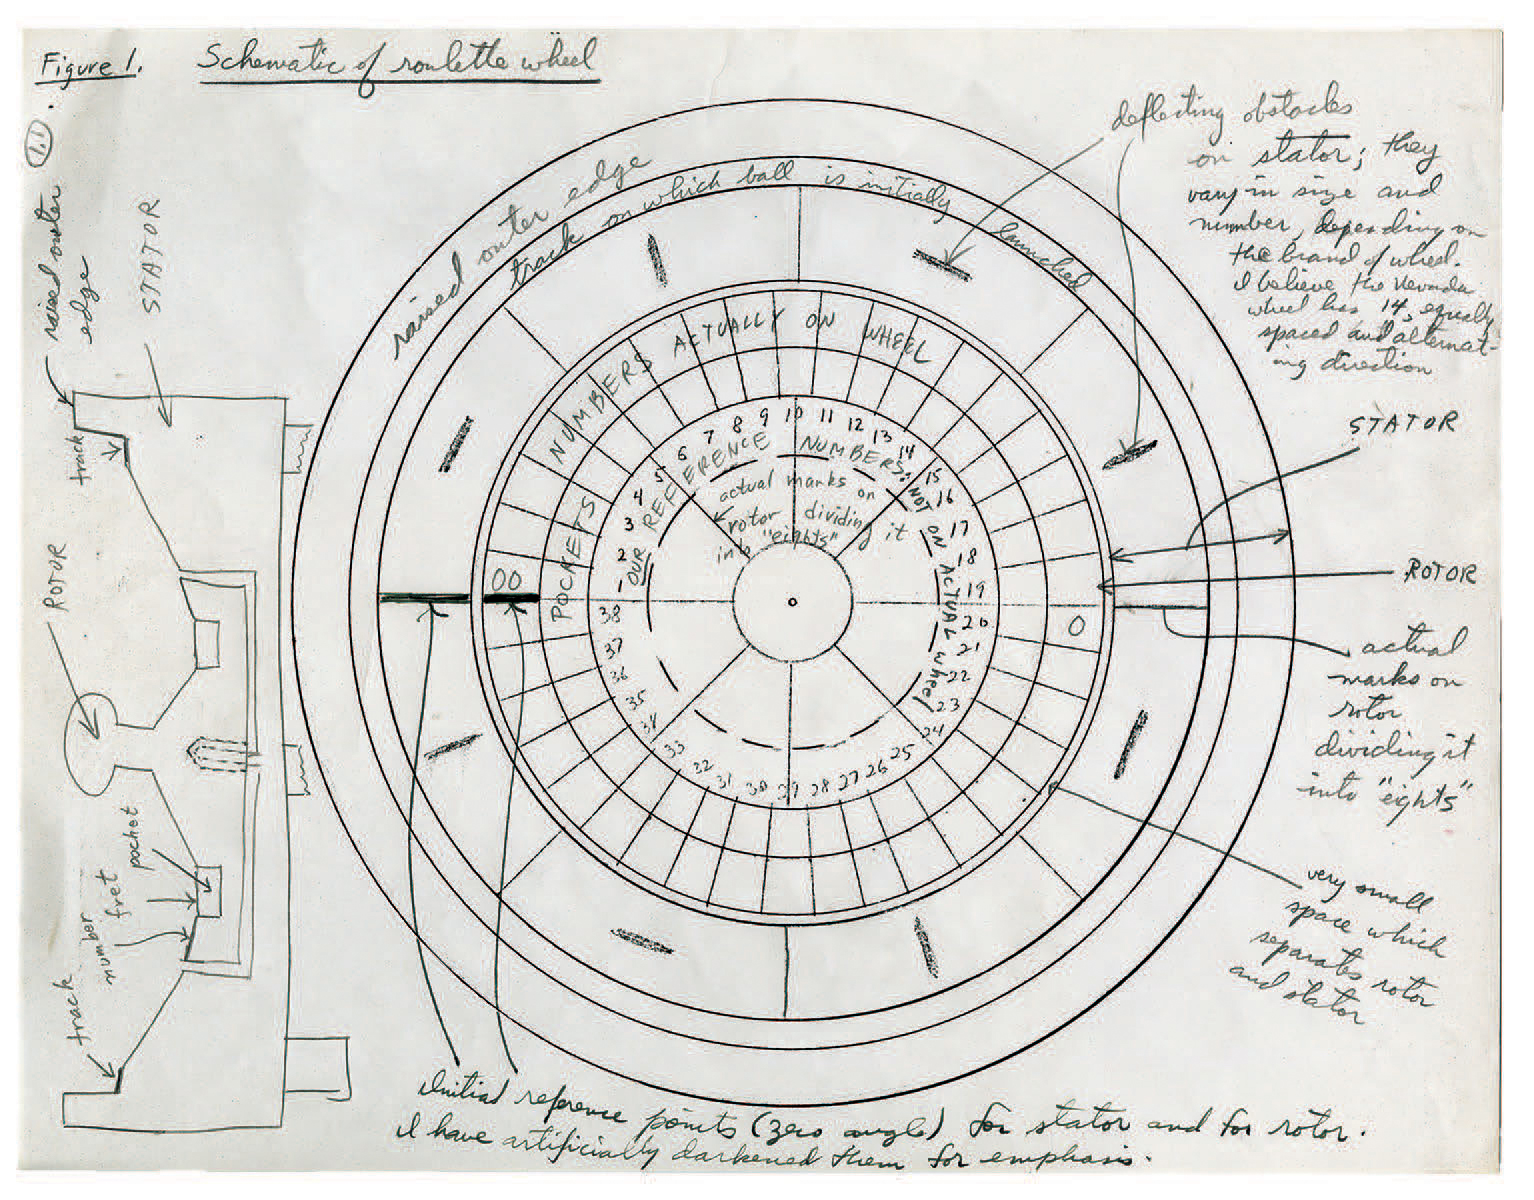 Figure 1.
Schematic of roulette wheel
1.1
raised outer
edge
STATOR
track
ROTOR
pocket
fret
number
track
raised outer edge
track on which ball is initially launched
NUMBERS ACTUALLY ON WHEEL
POCKETS
00
0
1 2 3 4 5 6 7 8 9 10 11 12 13 14 15 16 17 18 19 20 21 22 23 24 25 26 27 28 29 30 31 32 33 34 35 36 37 38
OUR REFERENCE NUMBERS: NOT ON ACTUAL wheel
actual marks on
rotor dividing it
into "eights"
deflecting obstacles
on stator; they
vary in size and
number, depending on
the brand of wheel.
I believe the Nevada
wheel has 14, equally
spaced and alternat-
ing direction
STATOR
ROTOR
actual
marks on
rotor
dividing it
into "eights"
very small
space which
separates rotor
and stator
Initial reference points (zero angle) for stator and for rotor.
I have artificially darkened them for emphasis.